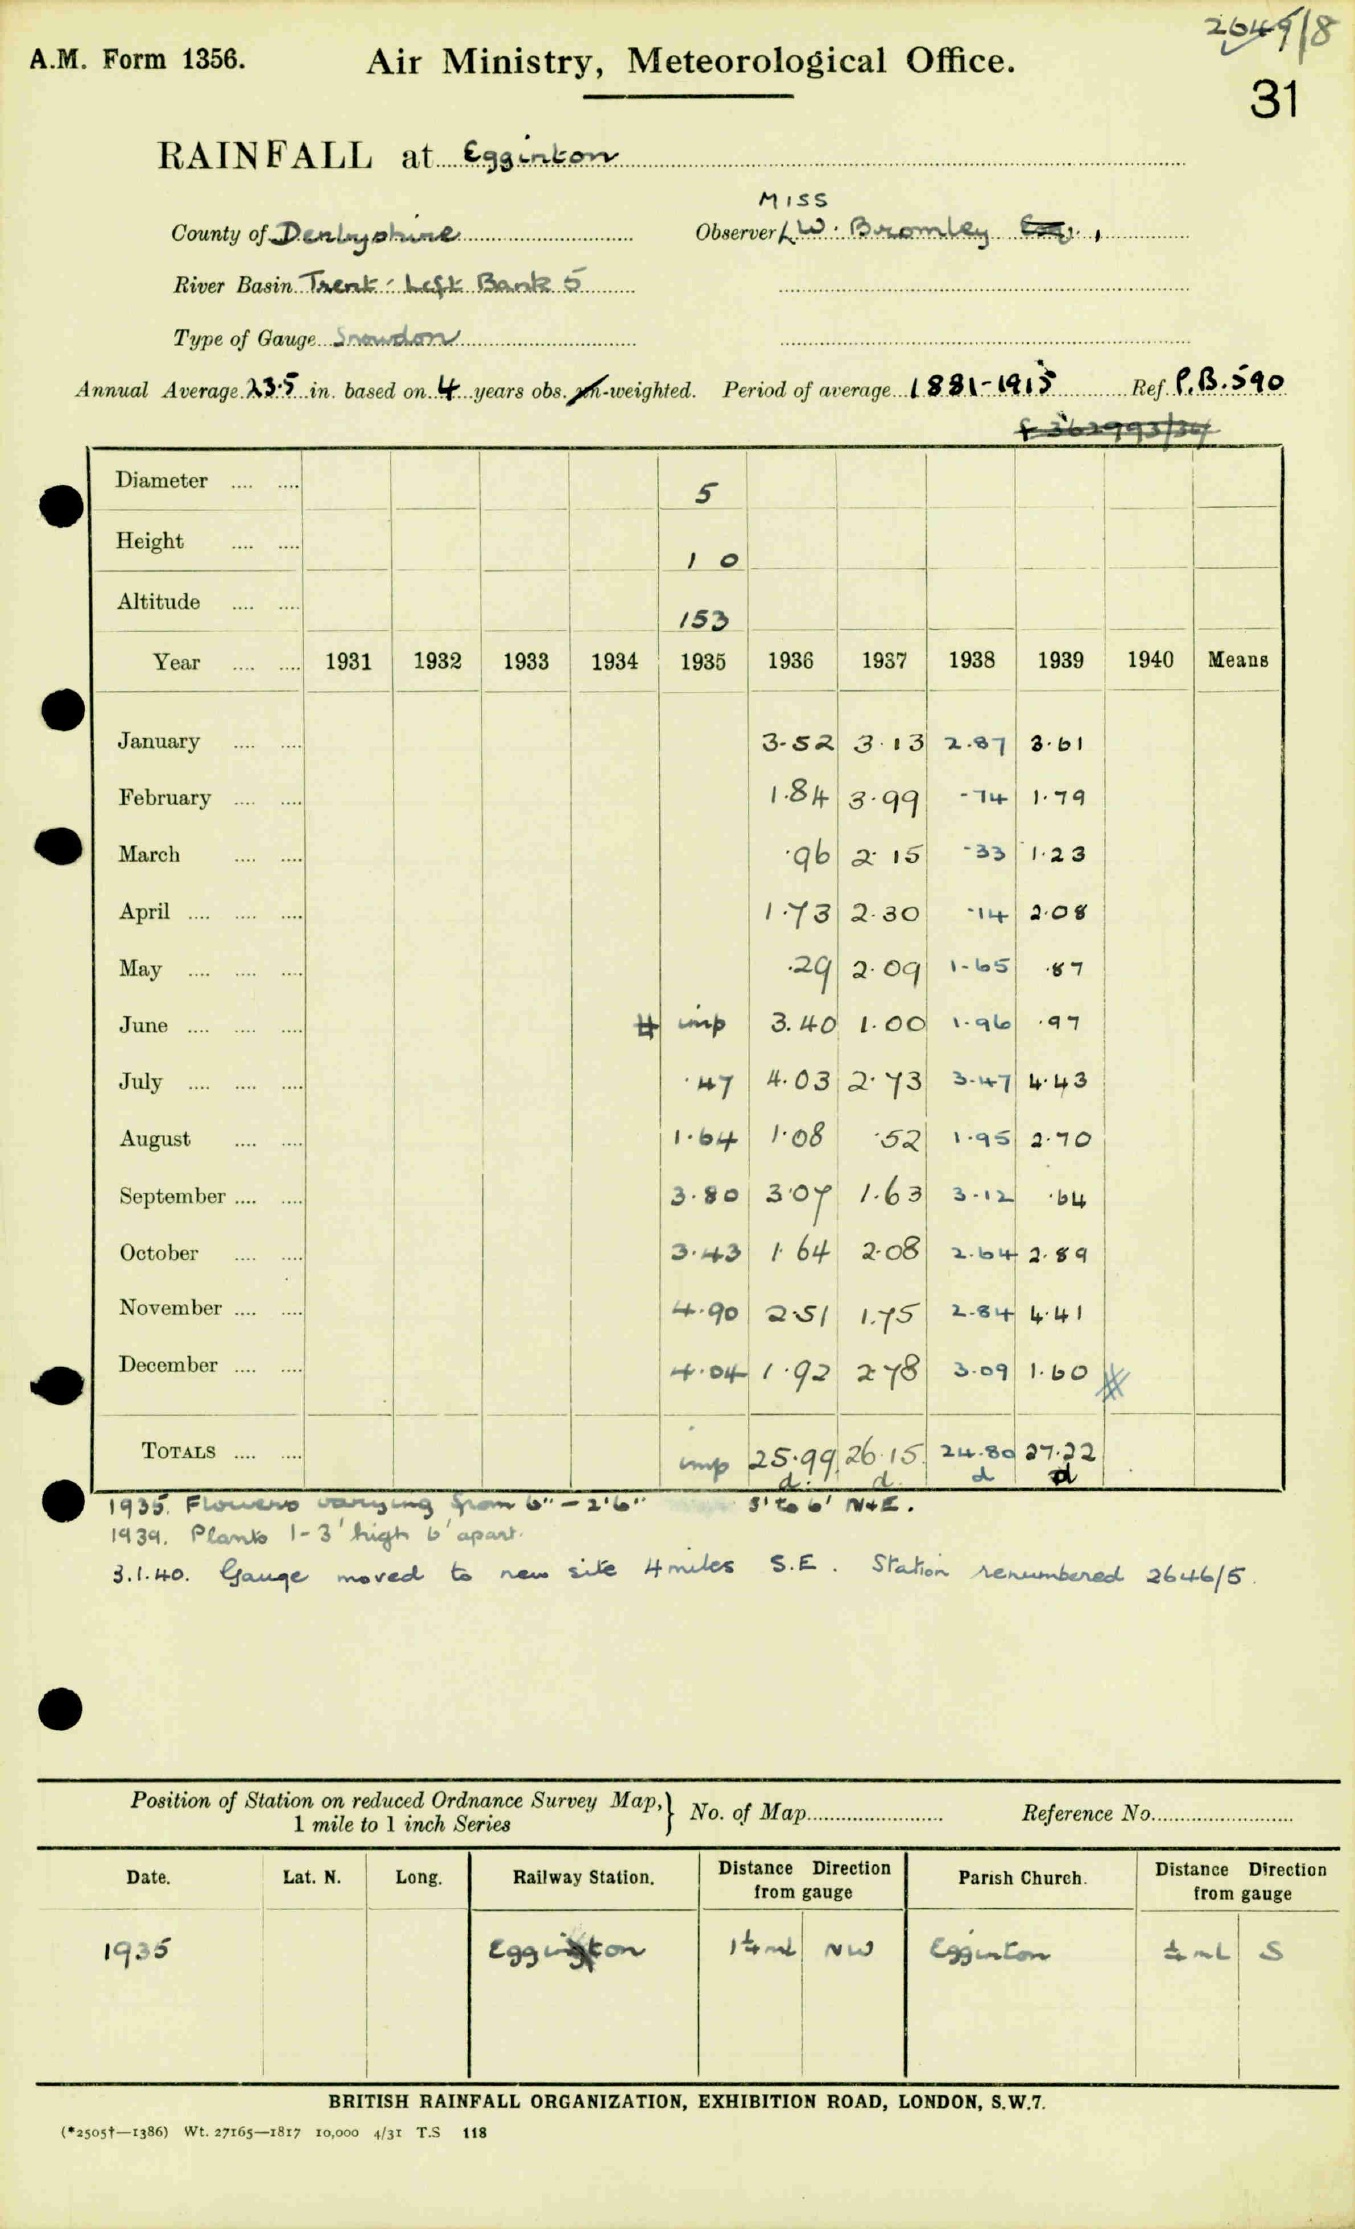 2649/8
A.M. Form 1356. Air Ministry, Meteorological Office.
31
RAINFALL at Egginton
MISS
County of Derbyshire Observer L.W. Bromley Esq.,
River Basin Trent: Left Bank 5
Type of Gauge Snowdon
Annual Average 23.5 in. based on 4 years obs. un-weighted. Period of average 1881-1915 Ref. P.B.590
f 362993/34
Diameter .... .... 5
Height .... .... 1 0
Altitude .... .... 153
Year .... .... 1931 1932 1933 1934 1935 1936 1937 1938 1939 1940 Means
January .... .... 3.52 3.13 2.87 3.61
February .... .... 1.84 3.99 .74 1.79
March .... .... .96 2.15 .33 1.23
April .... .... .... 1.73 2.30 .14 2.08
May .... .... .... .29 2.09 1.65 .87
June .... .... .... # imp 3.40 1.00 1.96 .97
July .... .... .... .47 4.03 2.73 3.47 4.43
August .... .... 1.64 1.08 .52 1.95 2.70
September .... .... 3.80 3.07 1.63 3.12 .64
October .... .... 3.43 1.64 2.08 2.64 2.89
November .... .... 4.90 2.51 1.75 2.84 4.41
December .... .... 4.04 1.92 2.78 3.09 1.60 #
TOTALS .... .... imp 25.99 26.15 24.80 27.22
d. d. d d
1935. Flowers varying from 6" - 2'6" 3' to 6' N+E.
1939. Plants 1-3' high 6' apart.
3.1.40. Gauge moved to new site 4 miles S.E. Station renumbered 2646/5.
Position of Station on reduced Ordnance Survey Map,
1 mile to 1 inch Series } No. of Map Reference No.
Date. Lat. N. Long. Railway Station. Distance Direction from gauge Parish Church. Distance Direction from gauge
1935 Egginton 1¼ ml NW Egginton ¼ ml S
BRITISH RAINFALL ORGANIZATION, EXHIBITION ROAD, LONDON, S.W.7.
(*2505†—1386) Wt. 27165—1817 10,000 4/31 T.S 118